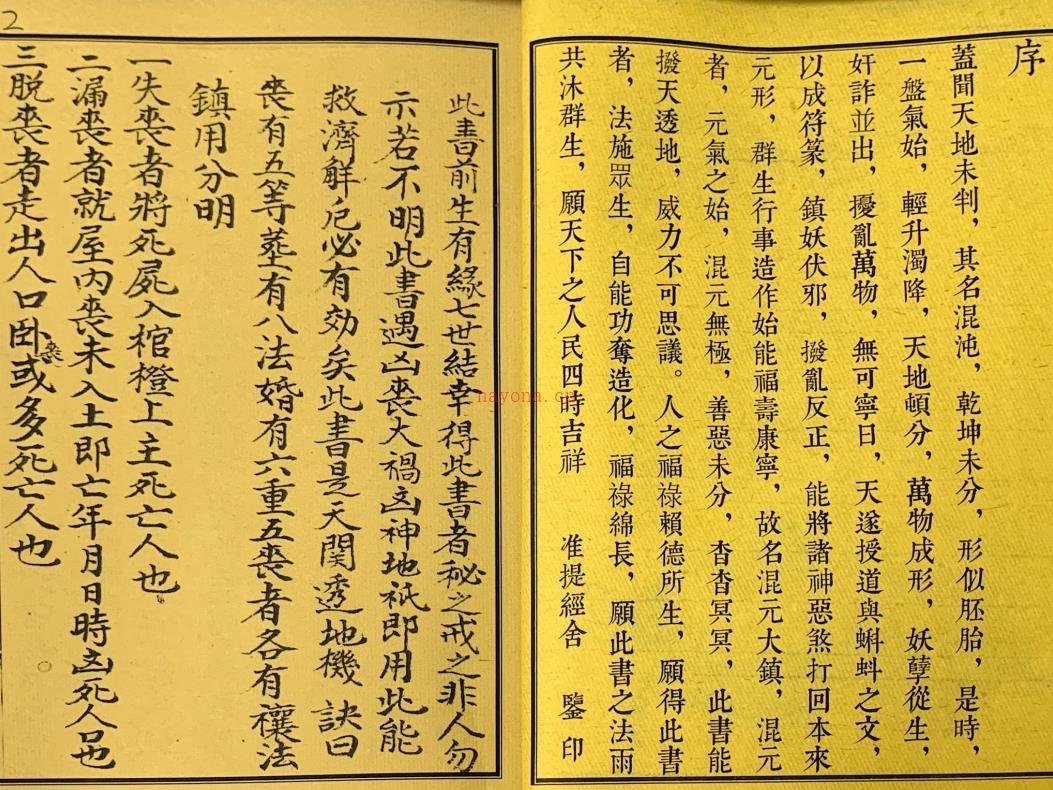 序
蓋聞天地未判，其名混沌，乾坤未分，形似胚胎，是時，
一盤氣始，輕升濁降，天地頓分，萬物成形，妖孽從生，
奸詐並出，擾亂萬物，無可寧日，天遂授道與蝌蚪之文，
以成符篆，鎮妖伏邪，撥亂反正，能將諸神惡煞打回本來
元形，群生行事造作始能福壽康寧，故名混元大鎮，混元
者，元氣之始，混元無極，善惡未分，杳杳冥冥，此書能
撥天透地，威力不可思議。人之福祿賴德所生，願得此書
者，法施眾生，自能功奪造化，福祿綿長，願此書之法雨
共沐群生，願天下之人民四時吉祥 准提經舍 鑒印
2
此書前生有緣七世結幸得此書者秘之戒之非人勿
示若不明此書遇凶喪大禍凶神地祇即用此能
救濟解厄必有効矣此書是天関透地機 訣曰
喪有五等葬有八法婚有六重五喪者各有禳法
鎮用分明
一失喪者將死屍入棺橙上主死亡人也
二漏喪者就屋內喪未入土即亡年月日時凶死人口也
三脫喪者走出人口卧喪或多死亡人也
nayona.cn